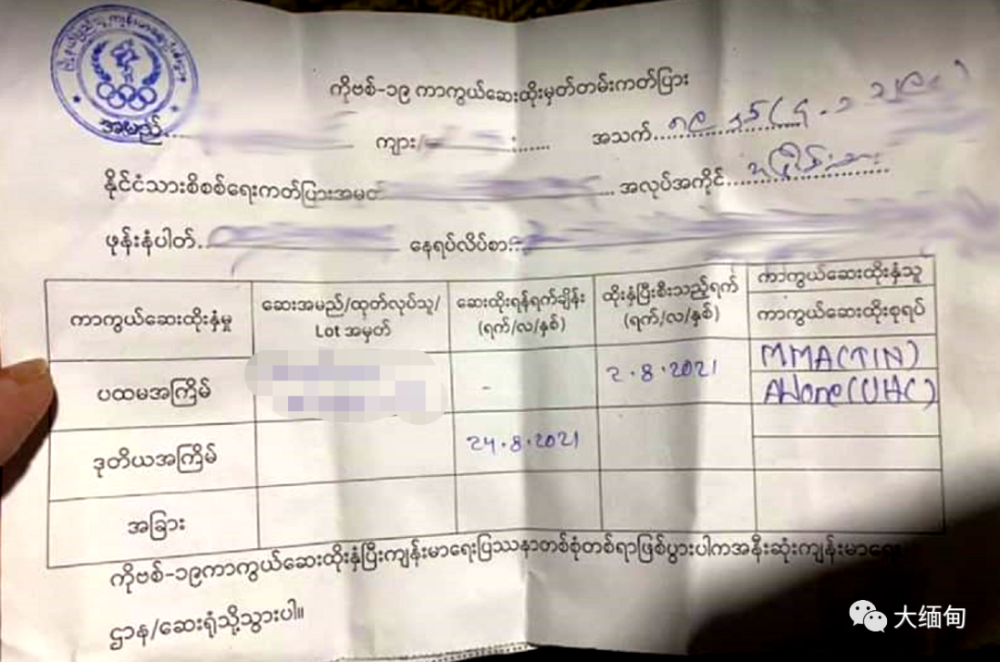 ကိုဗစ်-၁၉ ကာကွယ်ဆေးထိုးမှတ်တမ်းကတ်ပြား
အမည် ကျား/ အသက်
နိုင်ငံသားစိစစ်ရေးကတ်ပြားအမှတ် အလုပ်အကိုင်
ဖုန်းနံပါတ် နေရပ်လိပ်စာ
ကာကွယ်ဆေးထိုးနှံမှု ဆေးအမည်/ထုတ်လုပ်သူ/ Lot အမှတ် ဆေးထိုးရန်ရက်ချိန်း (ရက်/လ/နှစ်) ထိုးနှံပြီးစီးသည့်ရက် (ရက်/လ/နှစ်) ကာကွယ်ဆေးထိုးနှံသူ
ကာကွယ်ဆေးထိုးစုရပ်
ပထမအကြိမ် - 2.8.2021 MMA(TIN)
Ahlone(UHC)
ဒုတိယအကြိမ် 24.8.2021
အခြား
ကိုဗစ်-၁၉ကာကွယ်ဆေးထိုးနှံပြီးကျန်းမာရေးပြဿနာတစ်စုံတစ်ရာဖြစ်ပွားပါကအနီးဆုံးကျန်းမာရေး
ဌာန/ဆေးရုံသို့သွားပါ။
大缅甸